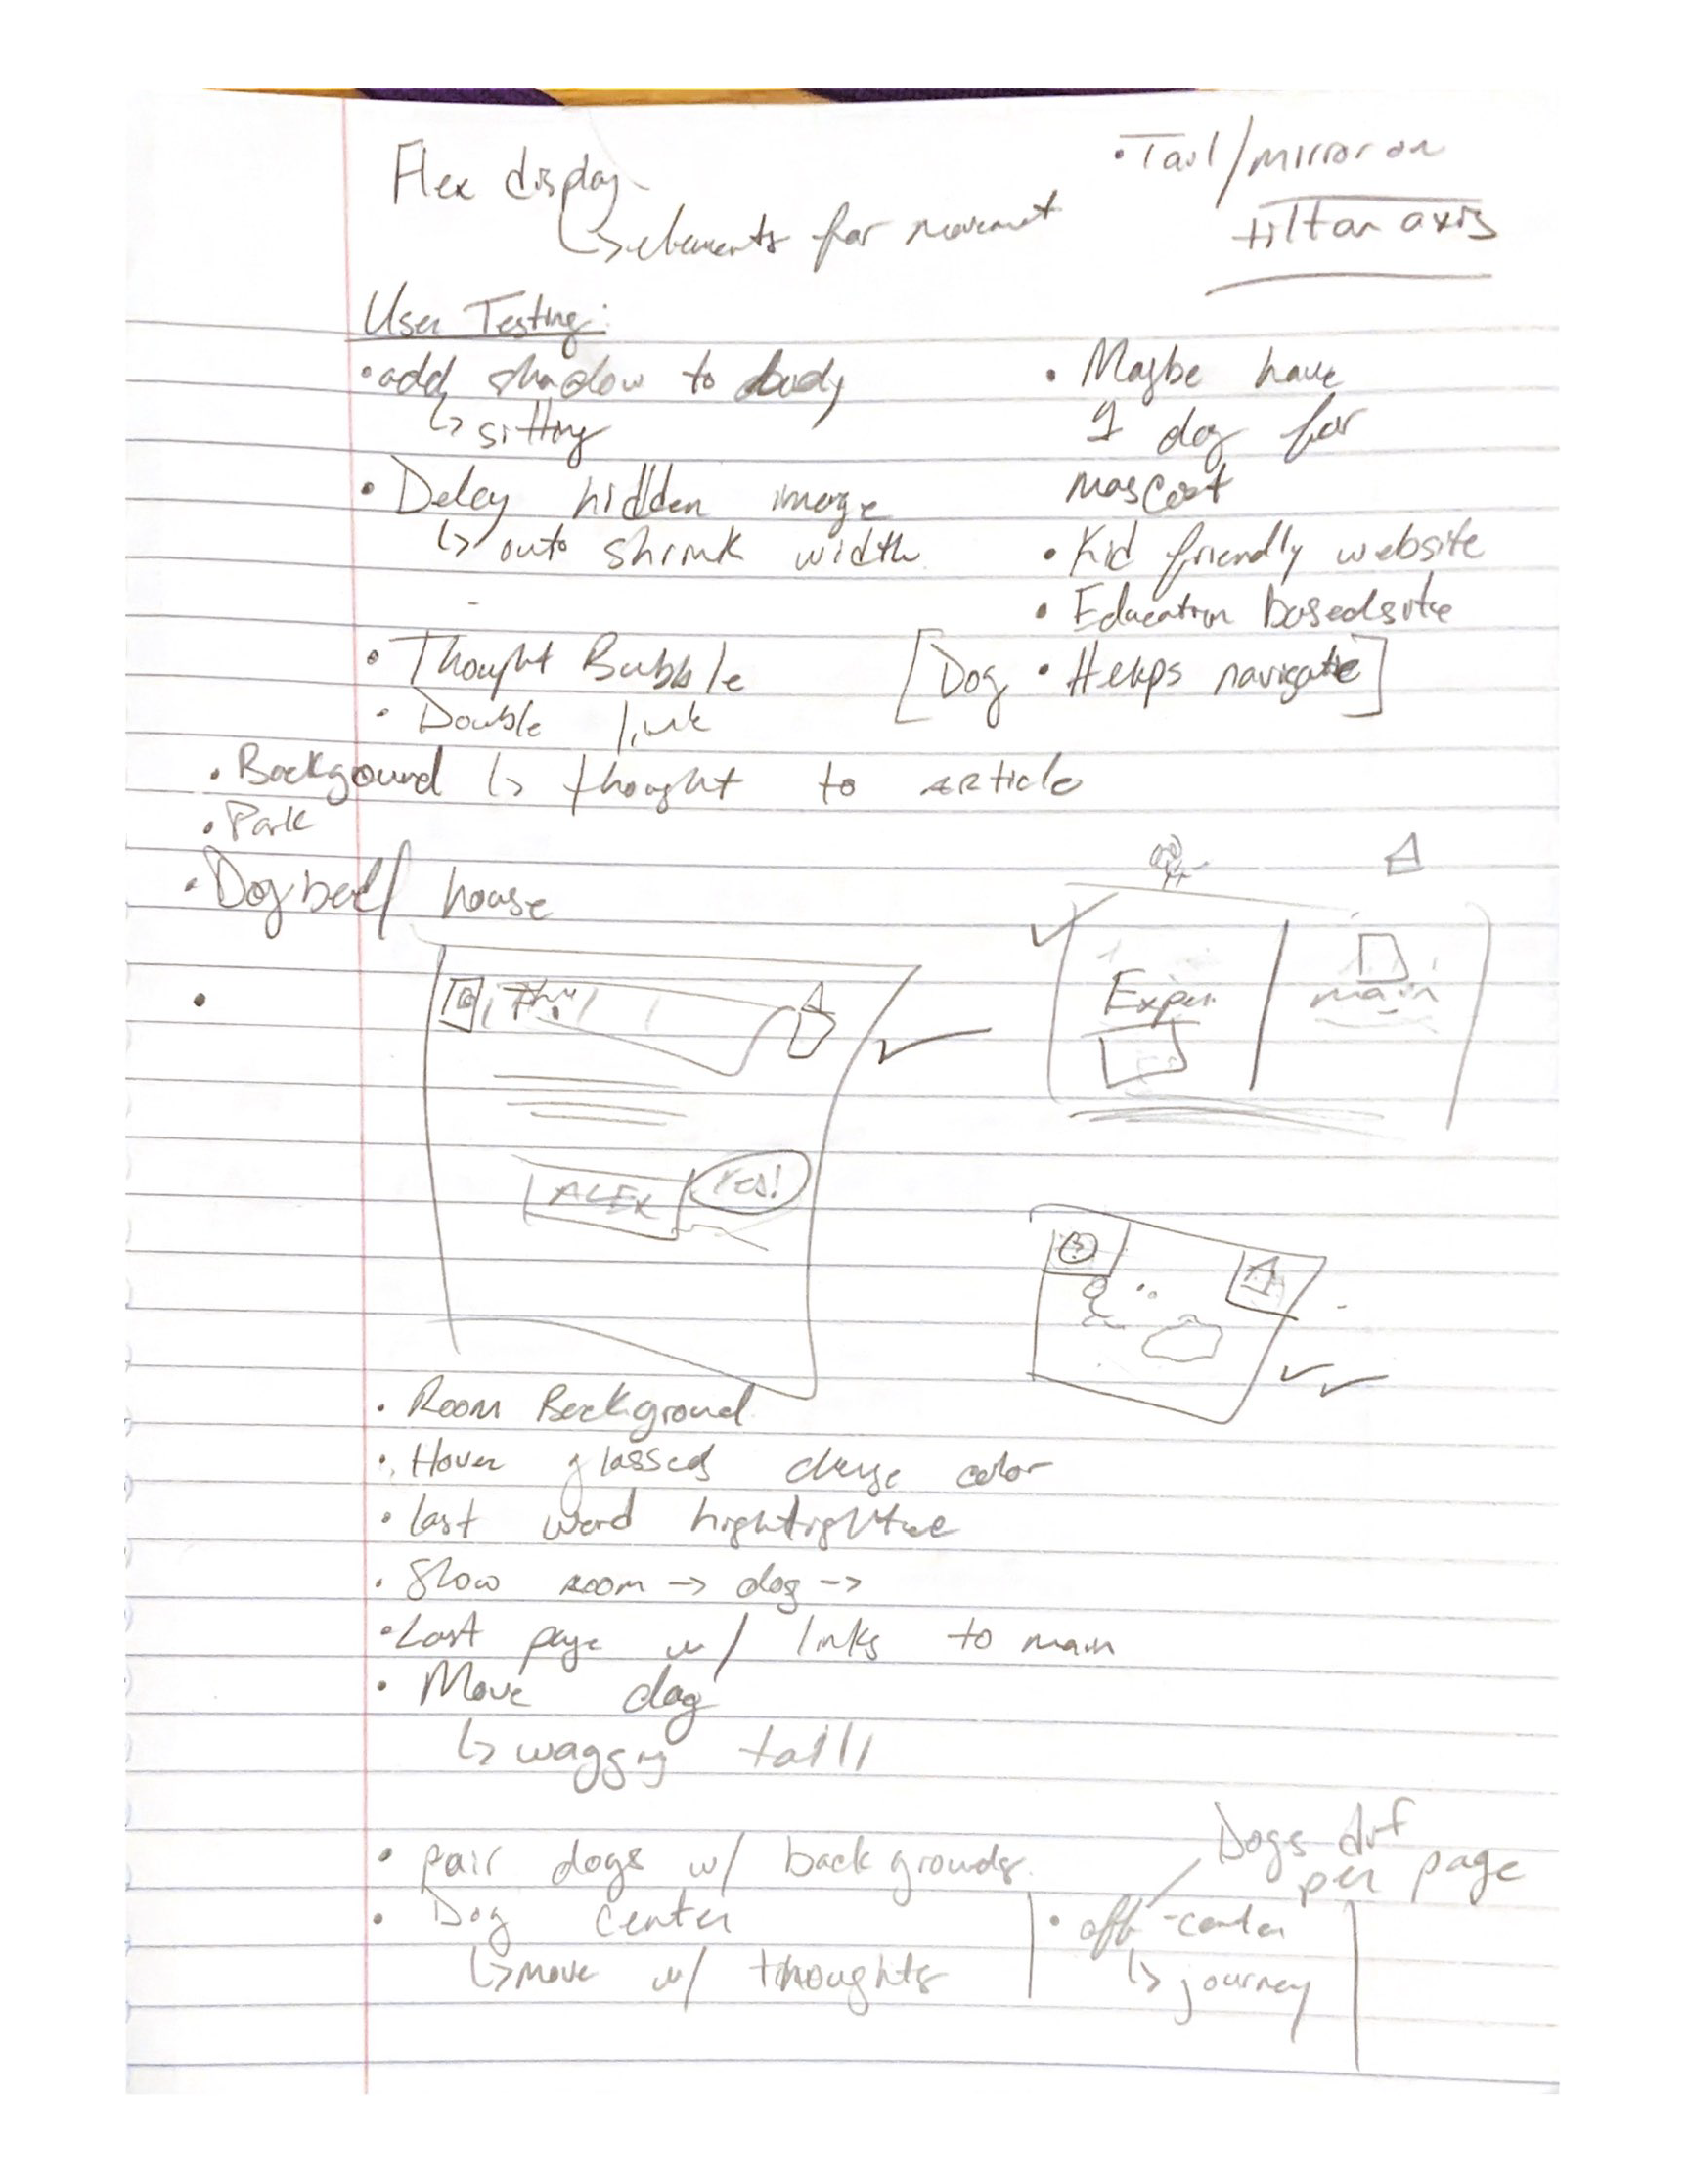 Flex display
↳ elements for movemet
• Tail/mirror on
tilt on axis
User Testing:
• add shadow to body
↳ sitting
• Delay hidden image
↳ auto shrink width
• Thought Bubble
• Double link
↳ thought to article
• Maybe have
1 dog for
mascot
• Kid friendly website
• Education based site
[Dog • Helps navigate]
• Backgound
• Park
• Dog bed/ house
ALEX
Yes!
Exper.
main
• Room Background
• Hover glasses change color
• last word
• Slow room → dog →
• Last page w/ links to main
• Move dog
↳ waggng tail!!
• pair dogs w/ backgrounds.
• Dog center
↳ move w/ thoughts
Dogs dif
per page
• off-center
↳ journey